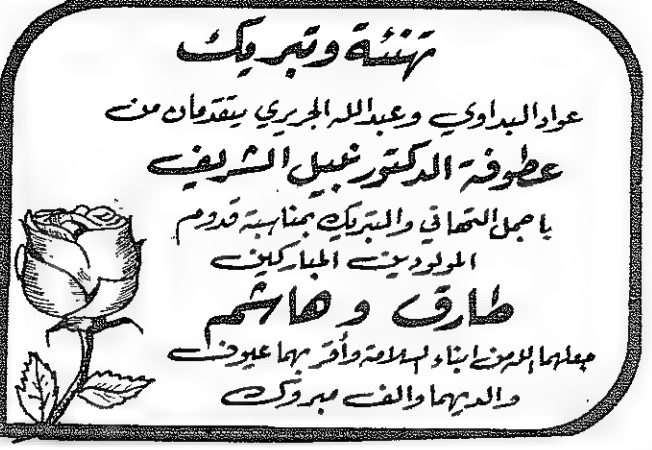 تهنئة وتبريك
عواد البداوي وعبدالله الجريري يتقدمان من
عطوفة الدكتور نبيل الشريف
باجمل التهاني والتبريك بمناسبة قدوم
المولودين المباركين
طارق و هاشم
جعلهما الله من ابناء السلامة وأقر بهما عيون
والديهما والف مبروك